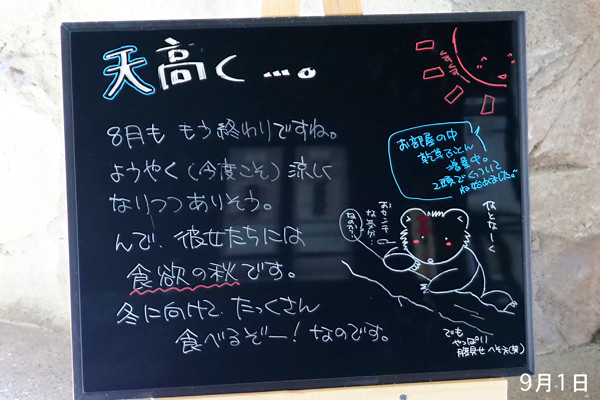 天高く…。
8月も もう終わりですね。
ようやく(今度こそ)涼しく
なりつつありそう。
んで、彼女たちには
食欲の秋です。
冬に向けて、たっくさん
食べるぞー!なのです。
お部屋の中
乾草ふとん
増量中。
2頭でくっついて
ね始めました。
なとなーく
おセンチ
な気分…
なのか?
でも
やっぱり
腹見せ へそ天(笑)
9月1日